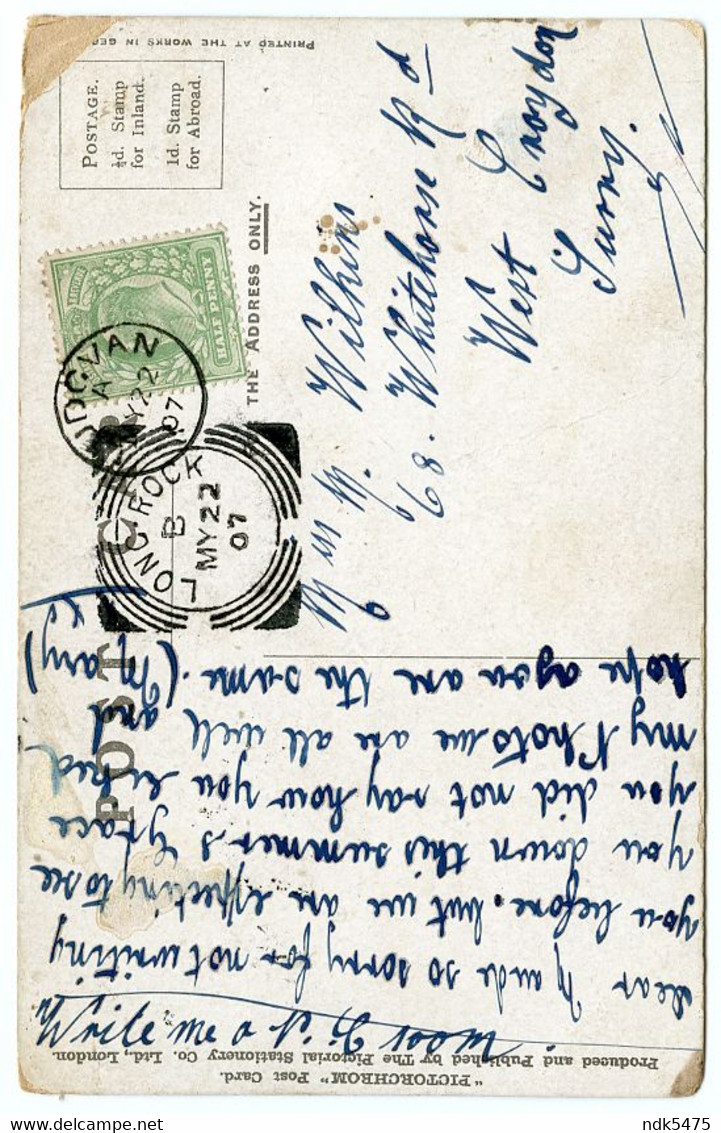 "PICTORCHROM" Post Card.
Produced and Published by The Pictorial Stationery Co. Ltd., London.
POST CARD
PRINTED AT THE WORKS IN
THE ADDRESS ONLY.
POSTAGE.
½d. Stamp
for Inland.
1d. Stamp
for Abroad.
HALF PENNY
LUDGVAN
A
MY 22
07
LONG ROCK
B
MY 22
07
Write me a
room
dear Maude so sorry for not writing
you before. but we are expecting to see
you down this summer. Grace
you did not say how you liked
my Photo we are all well and
hope you are the same. (Mary)
M. Wilkins
68. Whitehorse Rd
West Croydon
Surry.
ndk5475